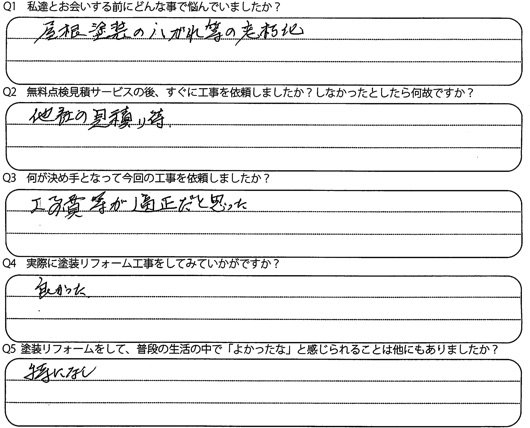 Q1 私達とお会いする前にどんな事で悩んでいましたか？
屋根塗装のハガれ等の老朽地
Q2 無料点検見積サービスの後、すぐに工事を依頼しましたか？しなかったとしたら何故ですか？
他社の見積り等.
Q3 何が決め手となって今回の工事を依頼しましたか？
工事費等が適正だと思った
Q4 実際に塗装リフォーム工事をしてみていかがですか？
良かった.
Q5 塗装リフォームをして、普段の生活の中で「よかったな」と感じられることは他にもありましたか？
特になし